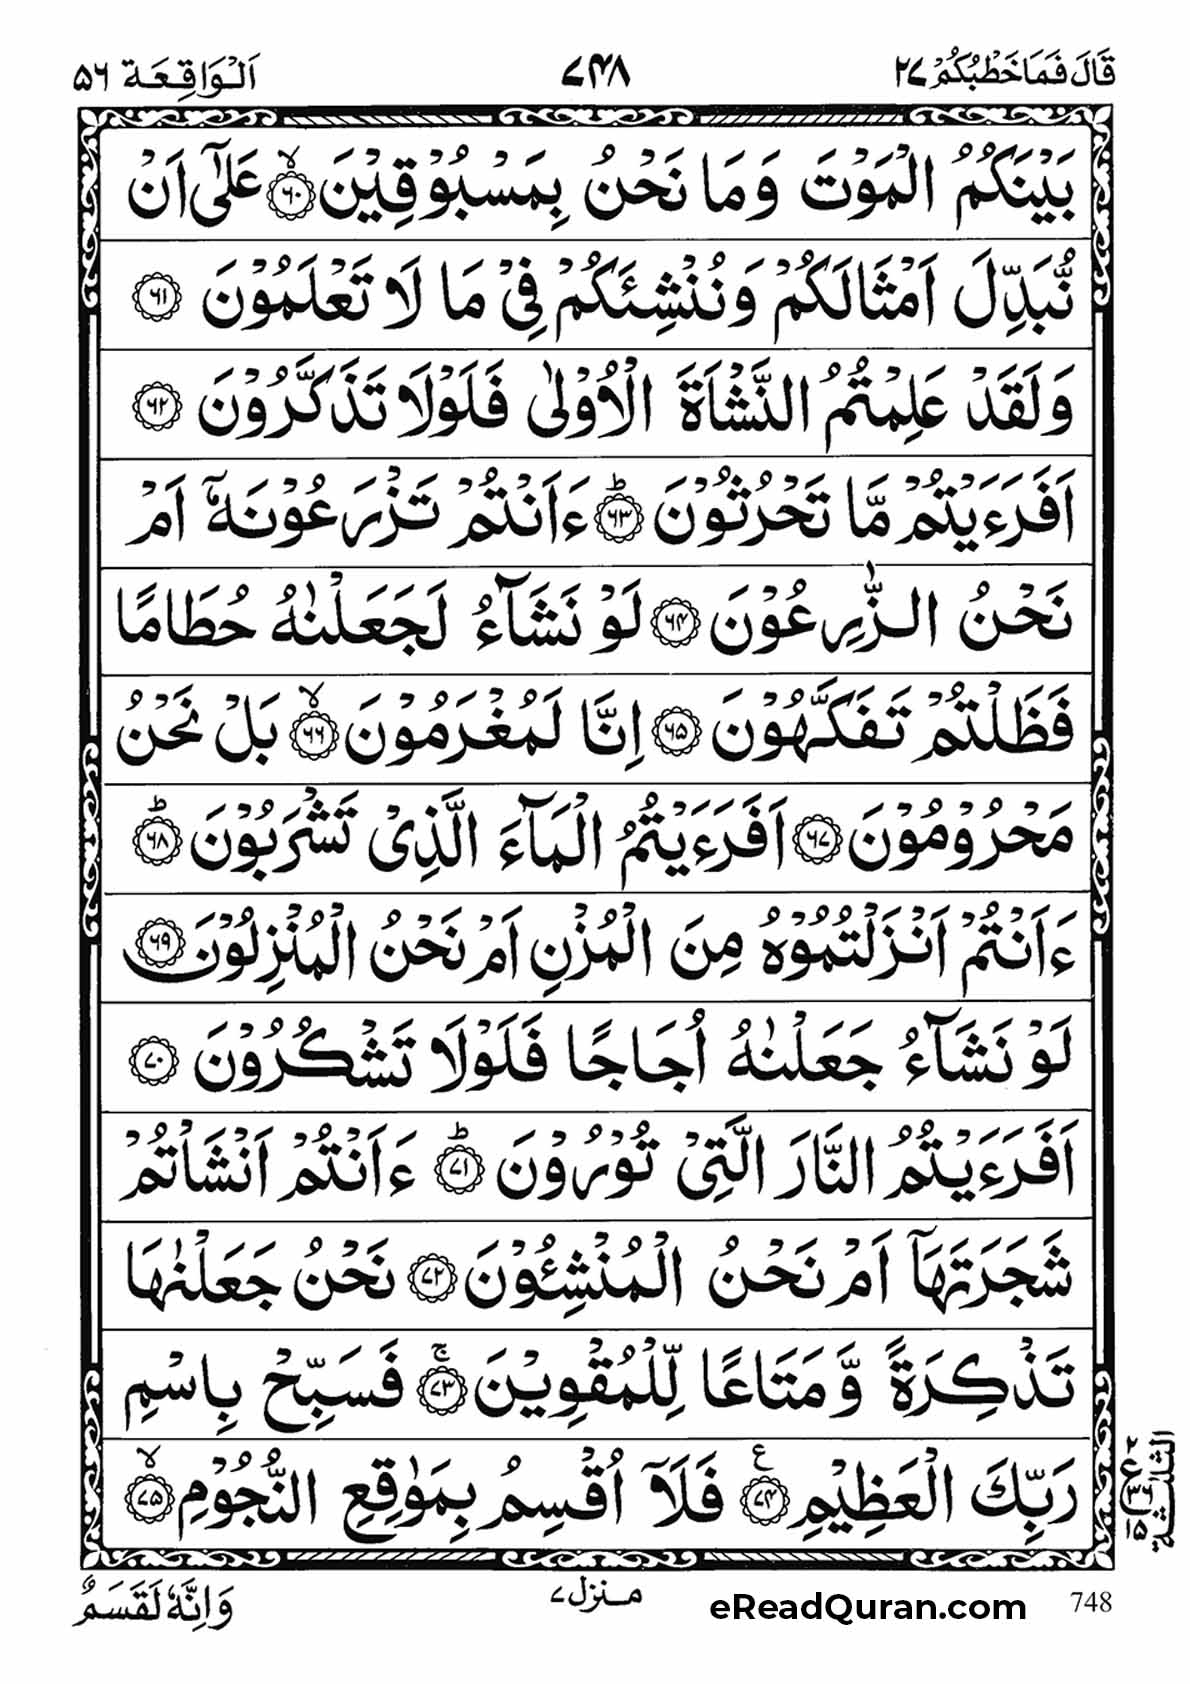 قَالَ فَمَا خَطْبُكُمْ ٢٧ ٧٤٨ اَلْوَاقِعَة ٥٦
بَيْنَكُمُ الْمَوْتَ وَمَا نَحْنُ بِمَسْبُوْقِيْنَ ۙ﴿٦٠﴾ عَلٰٓى اَنْ
نُّبَدِّلَ اَمْثَالَكُمْ وَنُنْشِئَكُمْ فِيْ مَا لَا تَعْلَمُوْنَ ﴿٦١﴾
وَلَقَدْ عَلِمْتُمُ النَّشْاَةَ الْاُوْلٰى فَلَوْلَا تَذَكَّرُوْنَ ﴿٦٢﴾
اَفَرَءَيْتُمْ مَّا تَحْرُثُوْنَ ؕ﴿٦٣﴾ ءَاَنْتُمْ تَزْرَعُوْنَهٗۤ اَمْ
نَحْنُ الزّٰرِعُوْنَ ﴿٦٤﴾ لَوْ نَشَآءُ لَجَعَلْنٰهُ حُطَامًا
فَظَلْتُمْ تَفَكَّهُوْنَ ﴿٦٥﴾ اِنَّا لَمُغْرَمُوْنَ ۙ﴿٦٦﴾ بَلْ نَحْنُ
مَحْرُوْمُوْنَ ﴿٦٧﴾ اَفَرَءَيْتُمُ الْمَآءَ الَّذِيْ تَشْرَبُوْنَ ؕ﴿٦٨﴾
ءَاَنْتُمْ اَنْزَلْتُمُوْهُ مِنَ الْمُزْنِ اَمْ نَحْنُ الْمُنْزِلُوْنَ ﴿٦٩﴾
لَوْ نَشَآءُ جَعَلْنٰهُ اُجَاجًا فَلَوْلَا تَشْكُرُوْنَ ﴿٧٠﴾
اَفَرَءَيْتُمُ النَّارَ الَّتِيْ تُوْرُوْنَ ؕ﴿٧١﴾ ءَاَنْتُمْ اَنْشَاْتُمْ
شَجَرَتَهَاۤ اَمْ نَحْنُ الْمُنْشِـُٔوْنَ ﴿٧٢﴾ نَحْنُ جَعَلْنٰهَا
تَذْكِرَةً وَّمَتَاعًا لِّلْمُقْوِيْنَ ۚ﴿٧٣﴾ فَسَبِّحْ بِاسْمِ
رَبِّكَ الْعَظِيْمِ ؏﴿٧٤﴾ فَلَآ اُقْسِمُ بِمَوٰقِعِ النُّجُوْمِ ۙ﴿٧٥﴾
الثلٰثة
وَاِنَّهٗ لَقَسَمٌ منزل ٧ eReadQuran.com 748